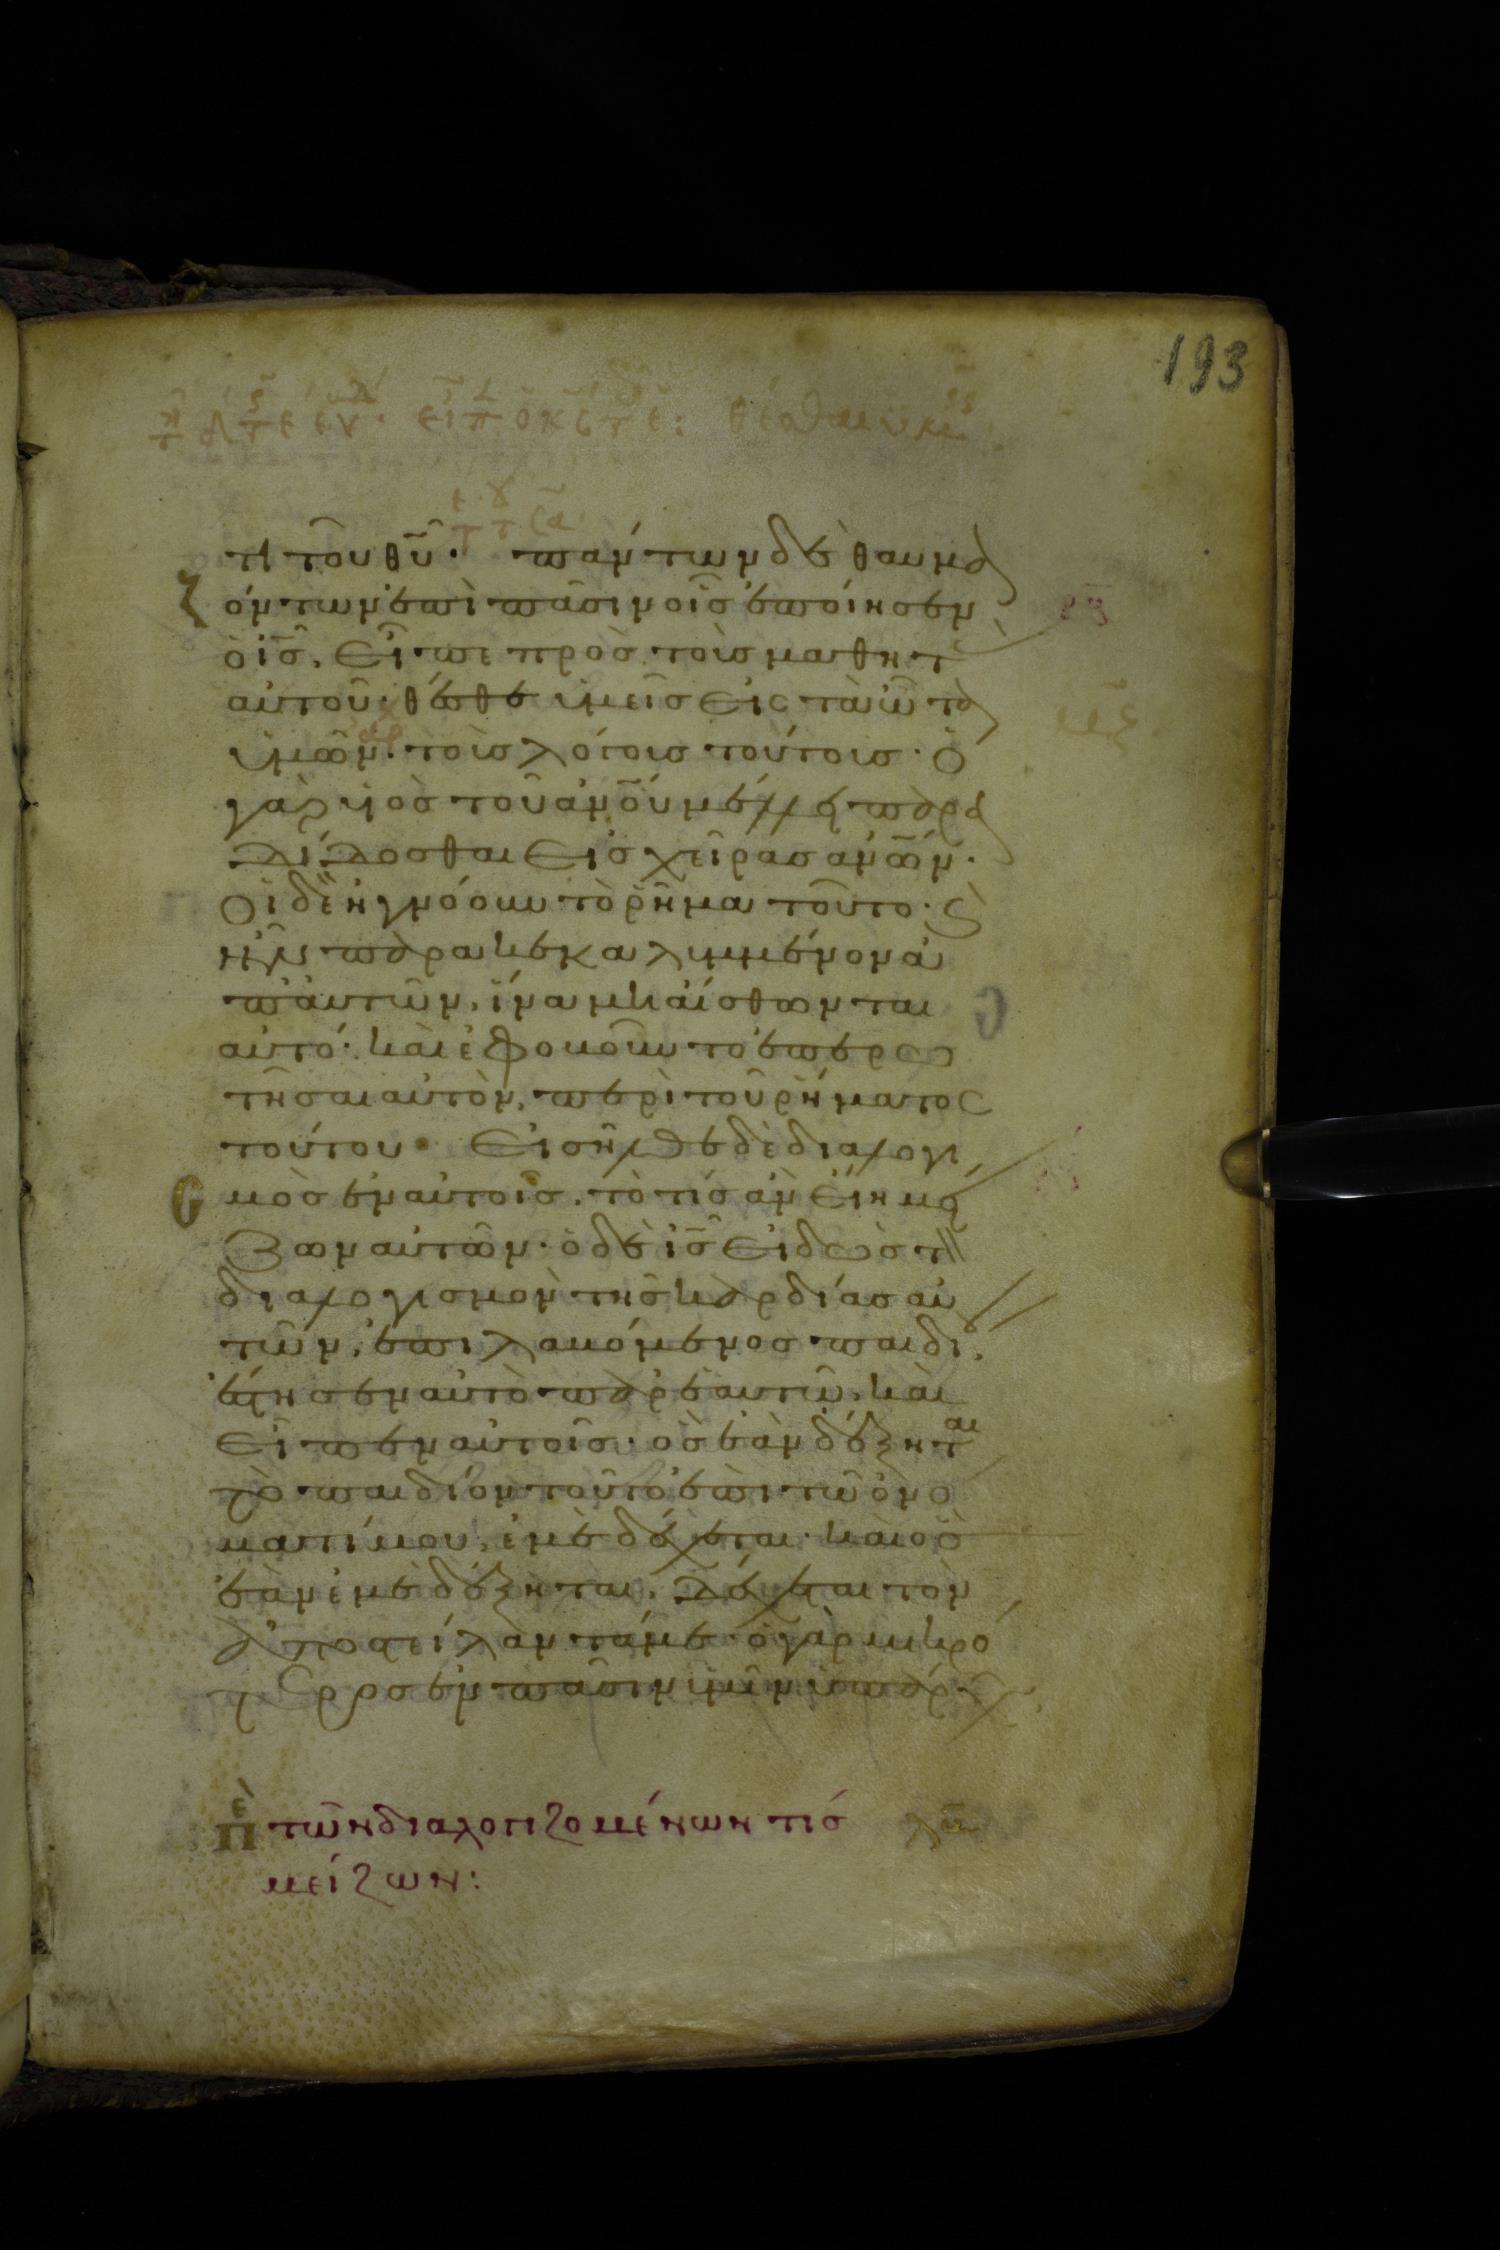 193
τι τοῦ θῦ· πάντων δὲ θαυμαζ
όντων ἐπὶ πᾶσιν οἷς ἐποίησεν
ὁ ισ, εἶπε πρὸς τοὺς μαθητ
αὐτοῦ· θέσθε ὑμεῖς εἰς τὰ ὦτα
ὑμῶν· τοὺς λόγους τούτους· ὁ
γὰρ υἱὸς τοῦ ανου μέλλει παρα
δίδοσθαι εἰς χεῖρας ανων·
οἱ δὲ ἠγνόουν τὸ ῥῆμα τοῦτο· καὶ
ἦν παρακεκαλυμμένον ἀ
π' αὐτῶν, ἵνα μὴ αἴσθωνται
αὐτό· καὶ ἐφοβοῦντο ἐπερω
τῆσαι αὐτὸν, περὶ τοῦ ῥήματος
τούτου· Εἰσῆλθε δὲ διαλογι
μὸς ἐν αὐτοῖς, τὸ τίς ἂν εἴη μεί
ζων αὐτῶν· ὁ δὲ ισ εἰδὼς τὸν
διαλογισμὸν τῆς καρδίας αὐ
τῶν, ἐπιλαβόμενος παιδί
ἔστησεν αὐτὸ παρ' ἑαυτῶ, καὶ
εἶπεν αὐτοῖς· ὃς ἐὰν δέξηται
τὸ παιδίον τοῦτο ἐπὶ τῶ ὀνό
ματί μου, ἐμὲ δέχεται· καὶ ὃς
ἐὰν ἐμὲ δέξηται, δέχεται τὸν
ἀποστείλαντά με· ὁ γὰρ μικρό
τερος ἐν πᾶσιν ὑμῖν ὑπάρχ
Πε τῶν διαλογιζομένων τίς
μείζων: